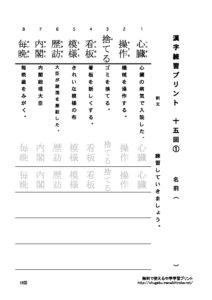 漢字練習プリント 十五回① 名前( )
練習していきましょう。
例文
1 心臓 心臓の病気で入院した。 心臓
2 操作 機械を操作する。 操作
3 捨てる ゴミを捨てる。 捨てる 捨てる
4 看板 看板を新しくする。 看板
5 模様 きれいな模様の布 模様
6 歴訪 大臣が諸国を歴訪した。 歴訪
7 内閣 内閣総理大臣 内閣
8 毎晩 毎晩歯をみがく。 毎晩
無料で使える中学学習プリント